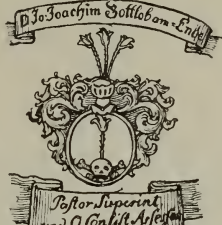 D Jo: Joachim Gottlob am-Ende
Pastor Superint
O Consist Assessor